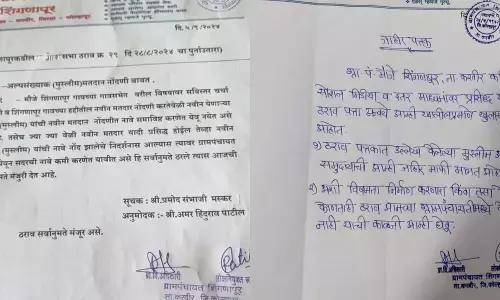 शिंगणापूर
दि. ५/९/२०२४
सभा ठराव क्र २९ दि २८/८/२०२४ चा पुर्नउतारा)
-अल्पसंख्याक (मुस्लीम)मतदान नोंदणी बाबत.
- मौजे शिंगणापूर गावच्या गावसभेत वरील विषयावर सविस्तर चर्चा
शिंगणापूर गावच्या हद्दीतील नवीन मतदान नोंदणी करतेवेळी नवीन येणाऱ्या
(मुस्लीम) यांची नवीन मतदान नोंदणीत नावे समाविष्ट करणेत येवू नयेत असे
तसेच ज्या ज्या वेळी नवीन मतदार यादी प्रसिद्ध होईल तेव्हा नवीन
(मुस्लीम) यांची नावे नोंद झालेचे निदर्शनास आल्यास त्यावर ग्रामपंचायत
घेवून सदरची नावे कमी करणेत यावीत असे हि सर्वानुमते ठरले त्यास आजची
मंजुरी देत आहे.
सूचक : श्री.प्रमोद संभाजी मस्कर
अनुमोदक :-श्री.अमर हिंदुराव पाटील
ठराव सर्वानुमते मंजूर असे.
ग्रामपंचायत शिंगणापूर
ता.करवीर, जि.
जाहीर पत्रक
ग्रा. पं. मौजे शिंगणापूर, ता. करवीर
सोशल मिडिया व इतर माध्यमांवर प्रसिद्ध
ठराव पत्रा संदर्भे आम्ही खालीलप्रमाणे
आहोत.
१) ठराव पत्रकात उल्लेख केलेल्या मुस्लीम
समुदायाची आम्ही जाहीर माफी मागत
२) अशी विषमता निर्माण करणारा किंवा
कोणताही ठराव आमच्या ग्रामपंचायतीमध्ये
नाही याची काळजी आम्ही घेवू.
ग्रामपंचायत शिंगणापूर
ता.करवीर, जि.